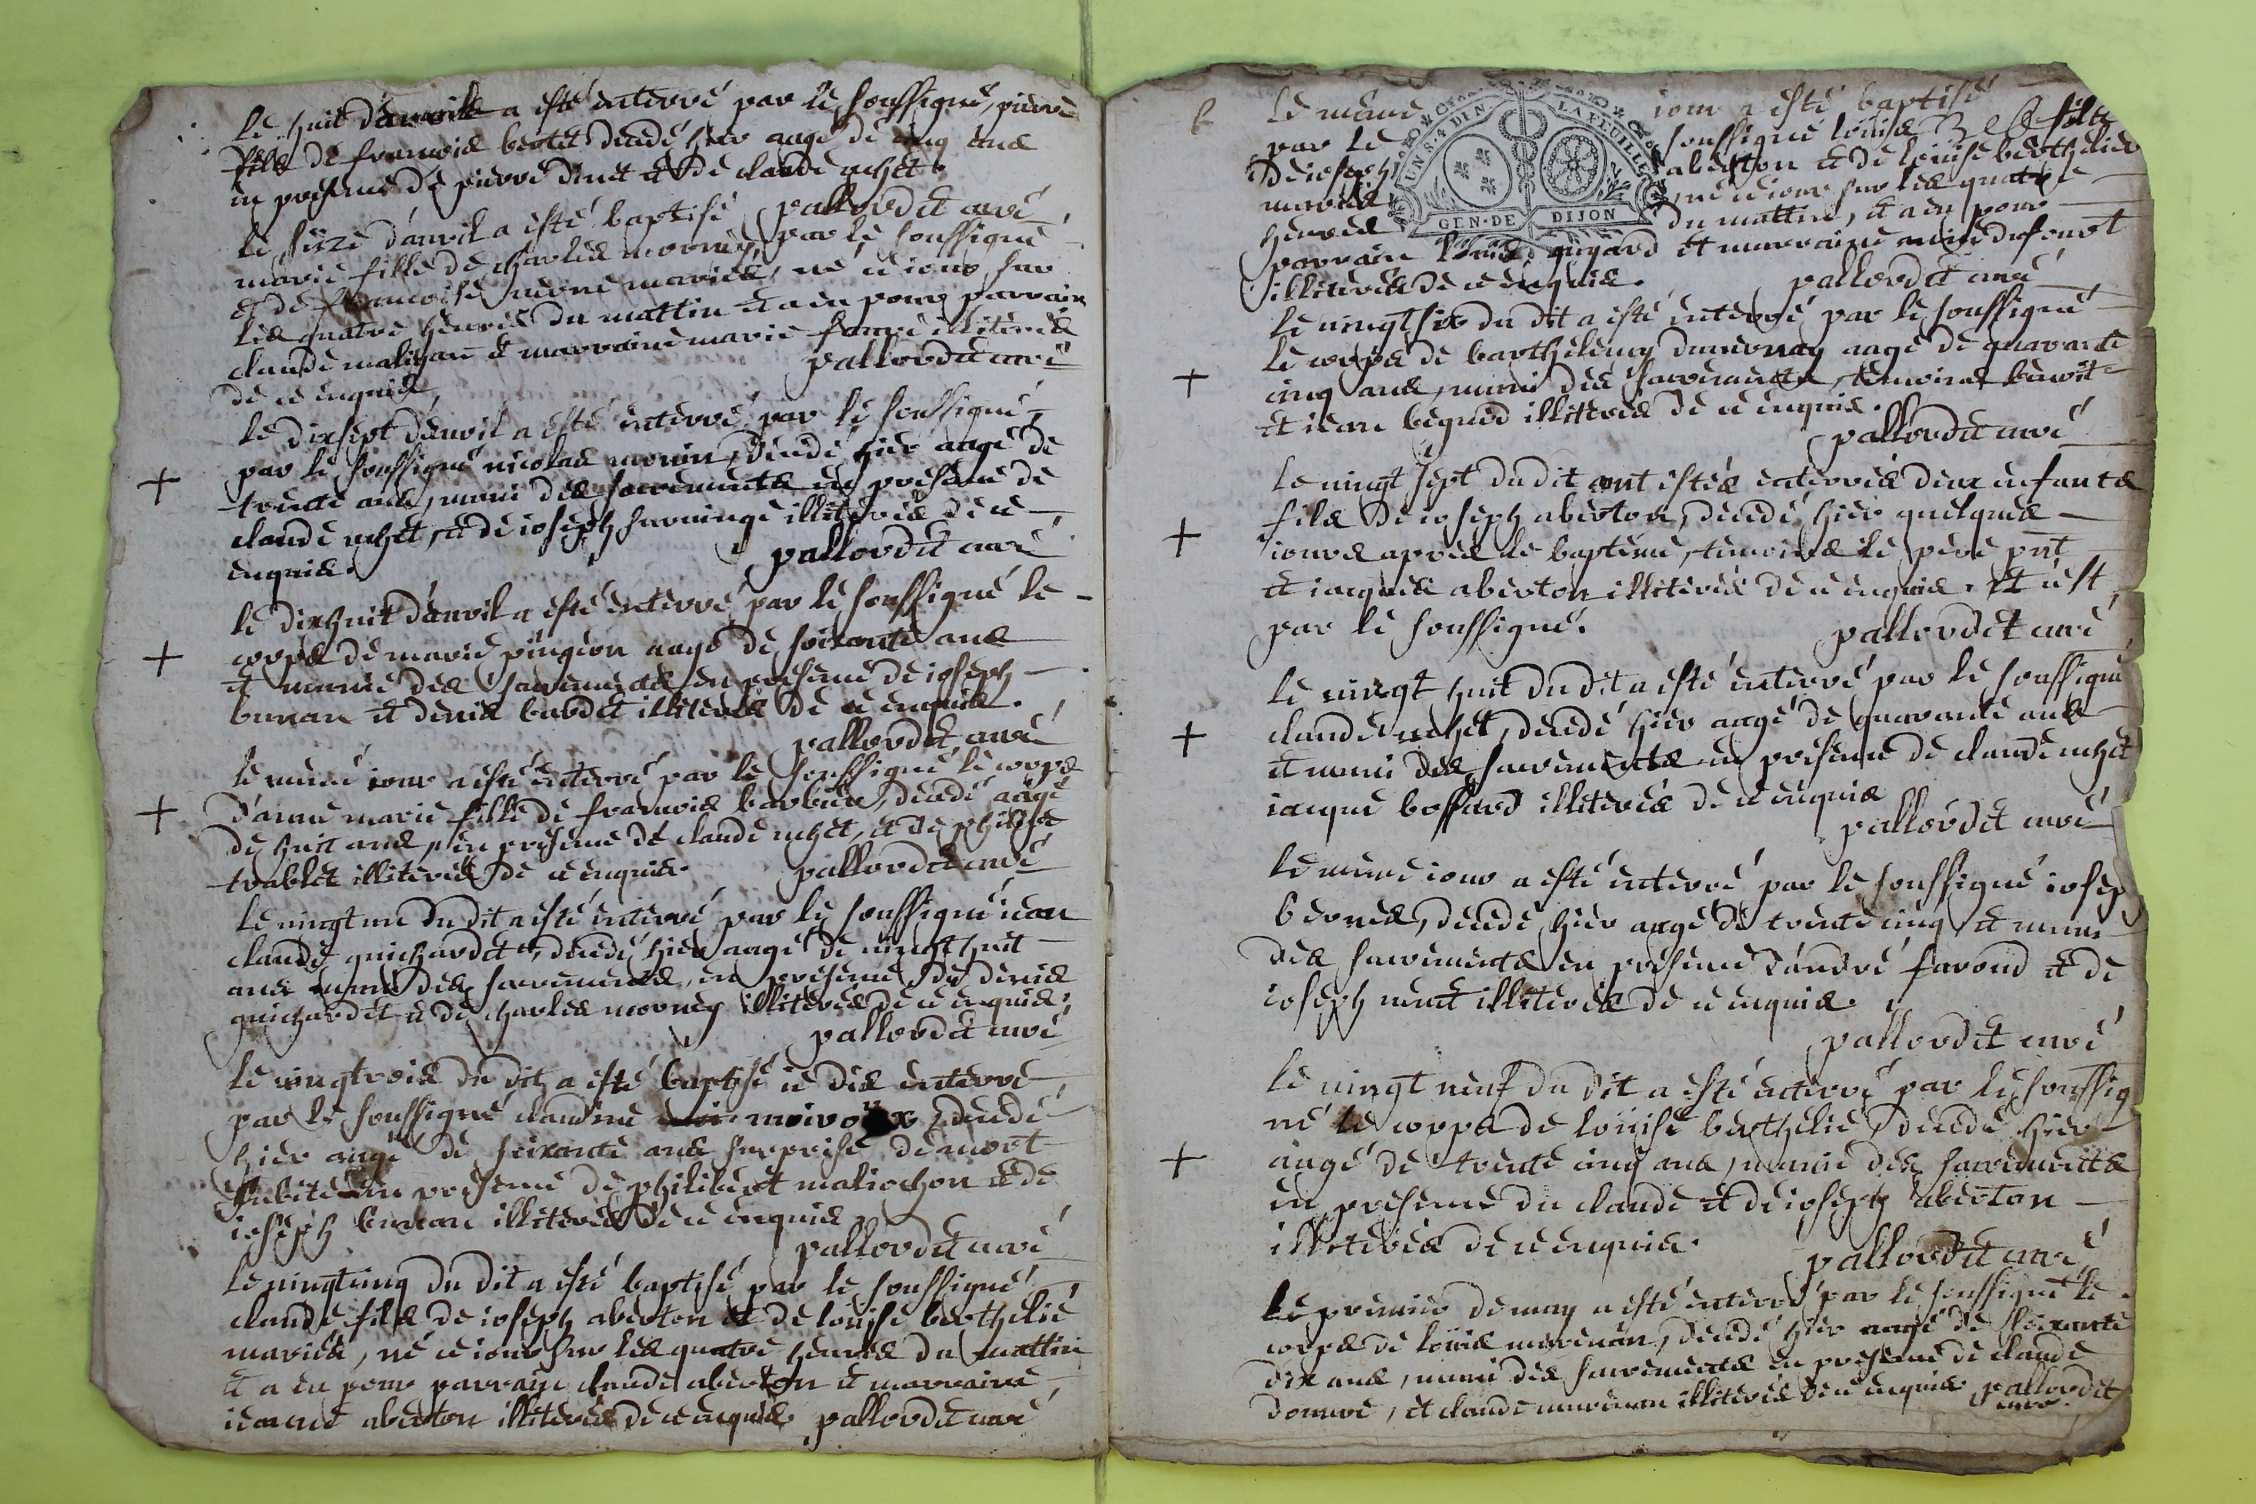 le huit d'avril a esté enterré par le soussigné, pierre
fils de francois bertet decedé hier aagé de cinq ans
en presence de pierre dinet et de claude uchet
pallordet curé
le seize d'avril a esté baptisé par le soussigné
marie fille de charles morney
et de francoise mariés, né ce iour sur
les quatre heures du mattin et a eu pour parrain
claude et marraine marie illiterés
de ce enquis, pallordet curé
le dixsept d'avril a esté enterré par le soussigné,
par le soussigné nicolas morin, decedé hier aagé de
trente ans, muni des sacrements en presence de
claude uchet, et de ioseph illiterés de ce
enquis. pallordet curé
le dixhuit d'avril a esté enterré par le soussigné le
corps de marie pingeon aagé de soixante ans
et munie des sacrements en presence de ioseph
bunan et denis bardet illiterés de ce enquis.
pallordet curé
le meme iour a esté enterré par le soussigné le corps
d'anne marie fille de francois barbier, decedé aagé
de huit ans, en presence de claude uchet, et de philipe
trablet illiterés de ce enquis. pallordet curé
le vingt un du dit a esté enterré par le soussigné iean
claude guichardet, decedé hier aagé de vingt huit
ans muni des sacrements, en presence de denis
guichardet et de charles morney illiterés de ce enquis.
pallordet curé
le vingtrois du dit a esté baptisé ie dis enterré
par le soussigné claudine decedé
hier aagé de soixante ans surprise de mort
subite en presence de philibert maliochon et de
ioseph bunan illiterés de ce enquis.
pallordet curé
le vingtcinq du dit a esté baptisé par le soussigné
claude fils de ioseph aberton et de louise berthelié
mariés, né ce iour sur les quatre heures du mattin
et a eu pour parrain claude aberton et marraine
ieanne aberton illiterés de ce enquis. pallordet curé
le meme iour a esté baptisé
par le soussigné louis fils
de ioseph aberton et de louise berthelier
mariés, né ce iour sur les quatre
heures du mattin, et a eu pour
parrain louis et marraine
illiterés de ce enquis. pallordet curé
UN S. 4 DEN. LA FEUILLE
GEN. DE DIJON
le vingtsix du dit a esté enterré par le soussigné
le corps de barthelemy duvernay aagé de quarante
cinq ans, muni des sacrements, temoins benoit
et iean illiterés de ce enquis.
pallordet curé
le vingt sept du dit ont estés enterrés deux enfants
fils de ioseph aberton, decedé hier quelques
iours apres le baptême, temoins le pere pnt
et iacques aberton illiterés de ce enquis. et c'est
par le soussigné.
pallordet curé
le vingt huit du dit a esté enterré par le soussigné
claude uchet, decedé hier aagé de quarante ans
et muni des sacrements en presence de claude uchet
iacque bossard illiterés de ce enquis
pallordet curé
le meme iour a esté enterré par le soussigné iosep
decedé hier aagé de trente cinq et muni
des sacrements en presence d'andré farond et de
ioseph illiterés de ce enquis.
pallordet curé
le vingt neuf du dit a esté enterré par le soussig
né le corps de louise berthelié, decedé hier
aagé de trente cinq ans, munie des sacrements
en presence du claude et de ioseph aberton
illiterés de ce enquis.
pallordet curé
le premier de may a esté enterré par le soussigné le
corps de louis decedé hier aagé de soixante
dix ans, muni des sacrements en presence de claude
et claude illiterés de ce enquis pallordet
curé